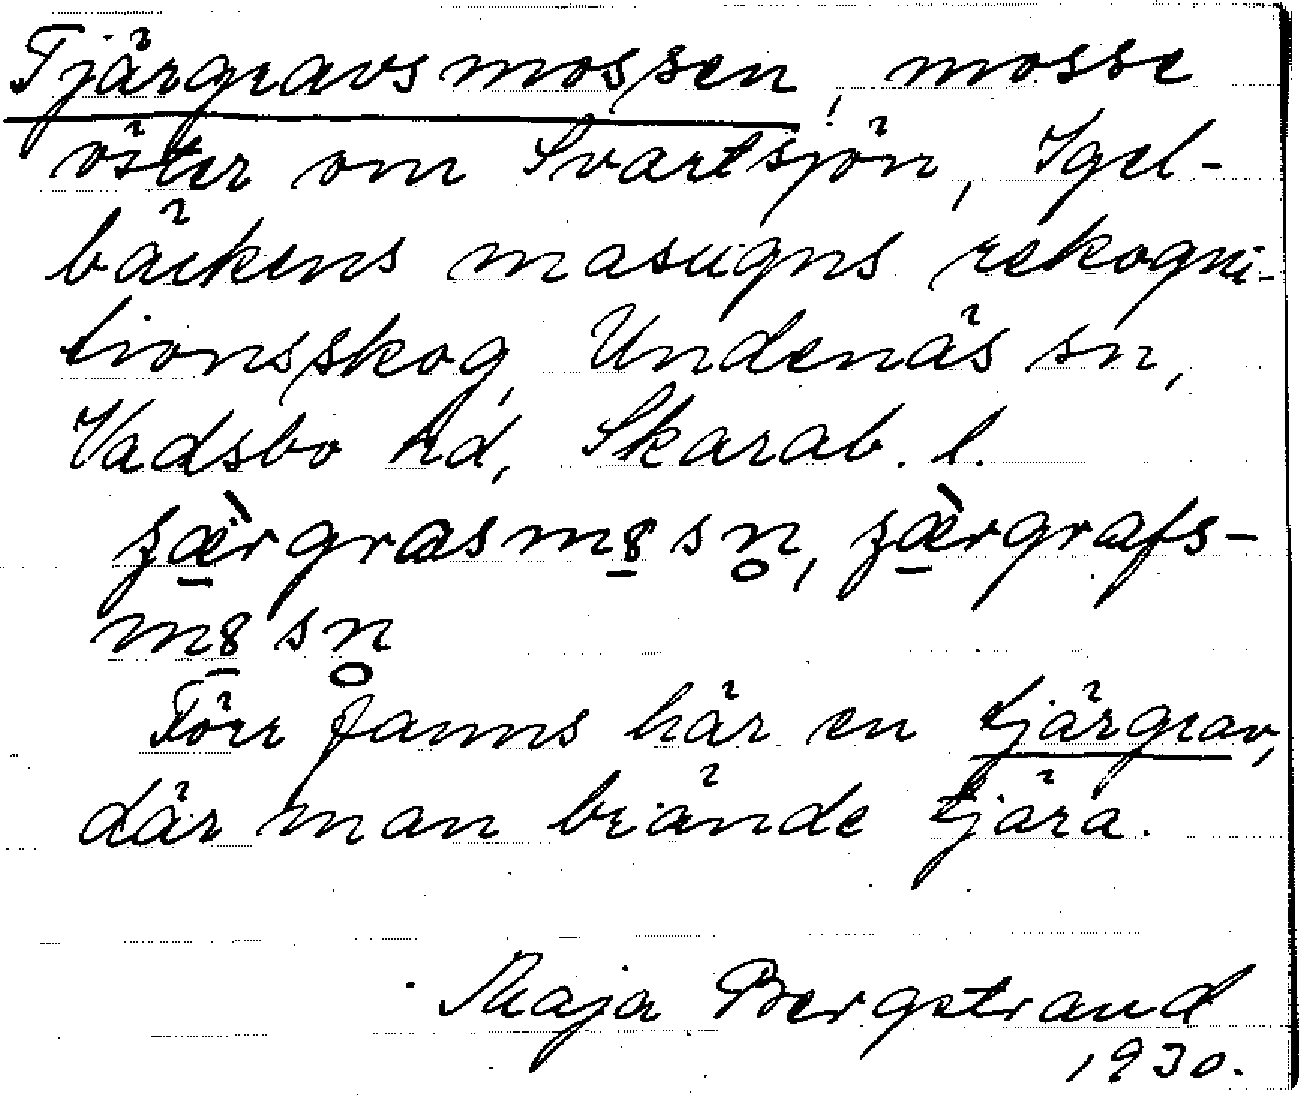 Tjärgravsmossen, mosse
öster om Svartsjön, Igel-
bäckens masugns rekogni-
tionsskog, Undenäs sn,
Vadsbo hd, Skarab. l.
Förr fanns här en tjärgrav,
där man brände tjära.
Maja Bergstrand
1930.